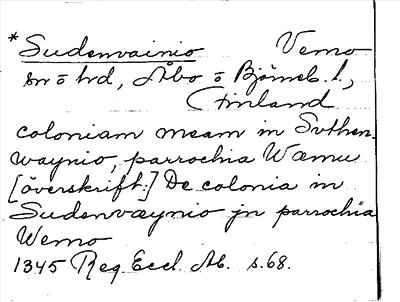 *Sudenvainio Vemo
sn o hd, Åbo o Björneb. l.,
Finland
coloniam meam in Suthen-
waynio, parrochia Wæmu
[överskrift:] De colonia in
Sudenvæynio jn parrochia
Wemo
1345 Reg. Eccl. Ab. s. 68.